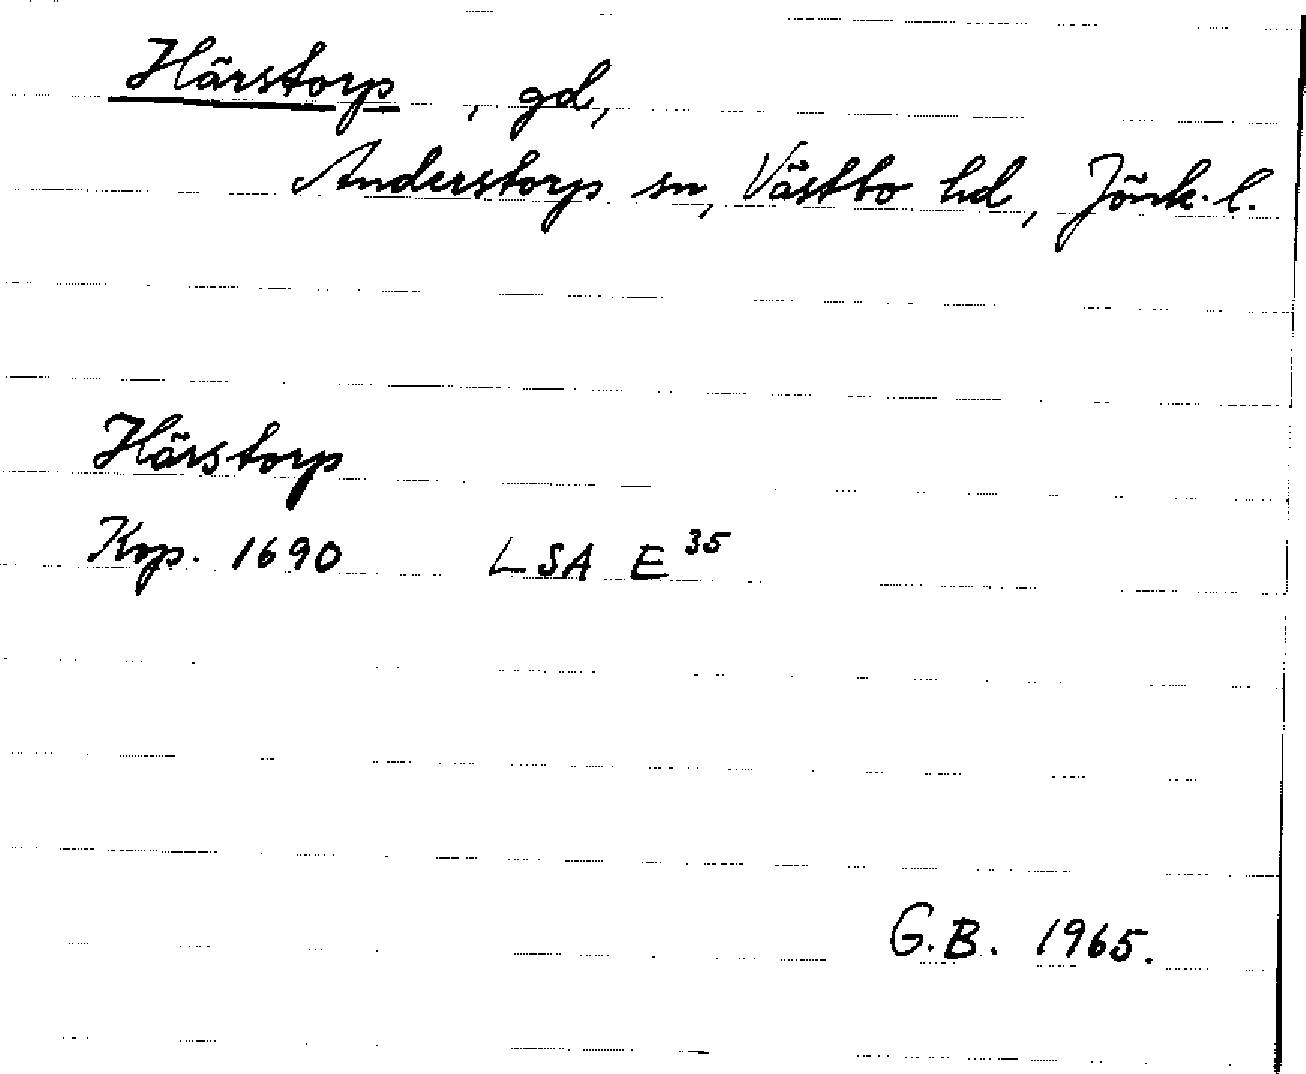 Härstorp, gd,
Anderstorp sn, Västbo hd, Jönk. l.
Härstorp
Kop. 1690 LSA E 35
G.B. 1965.